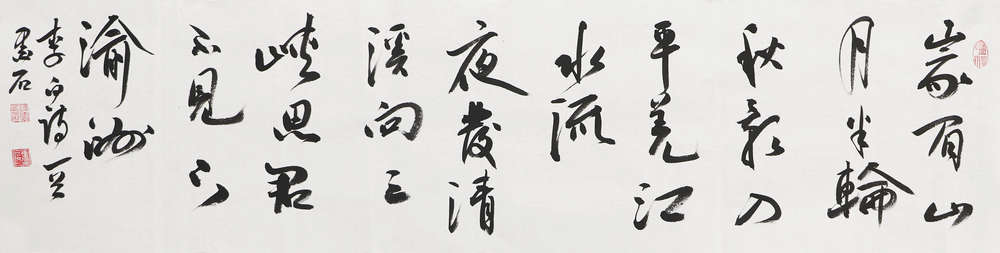 峩眉山
月半輪
秋影入
平羌江
水流
夜發清
溪向三
峽思君
不見下
渝洲
李白詩一首
石